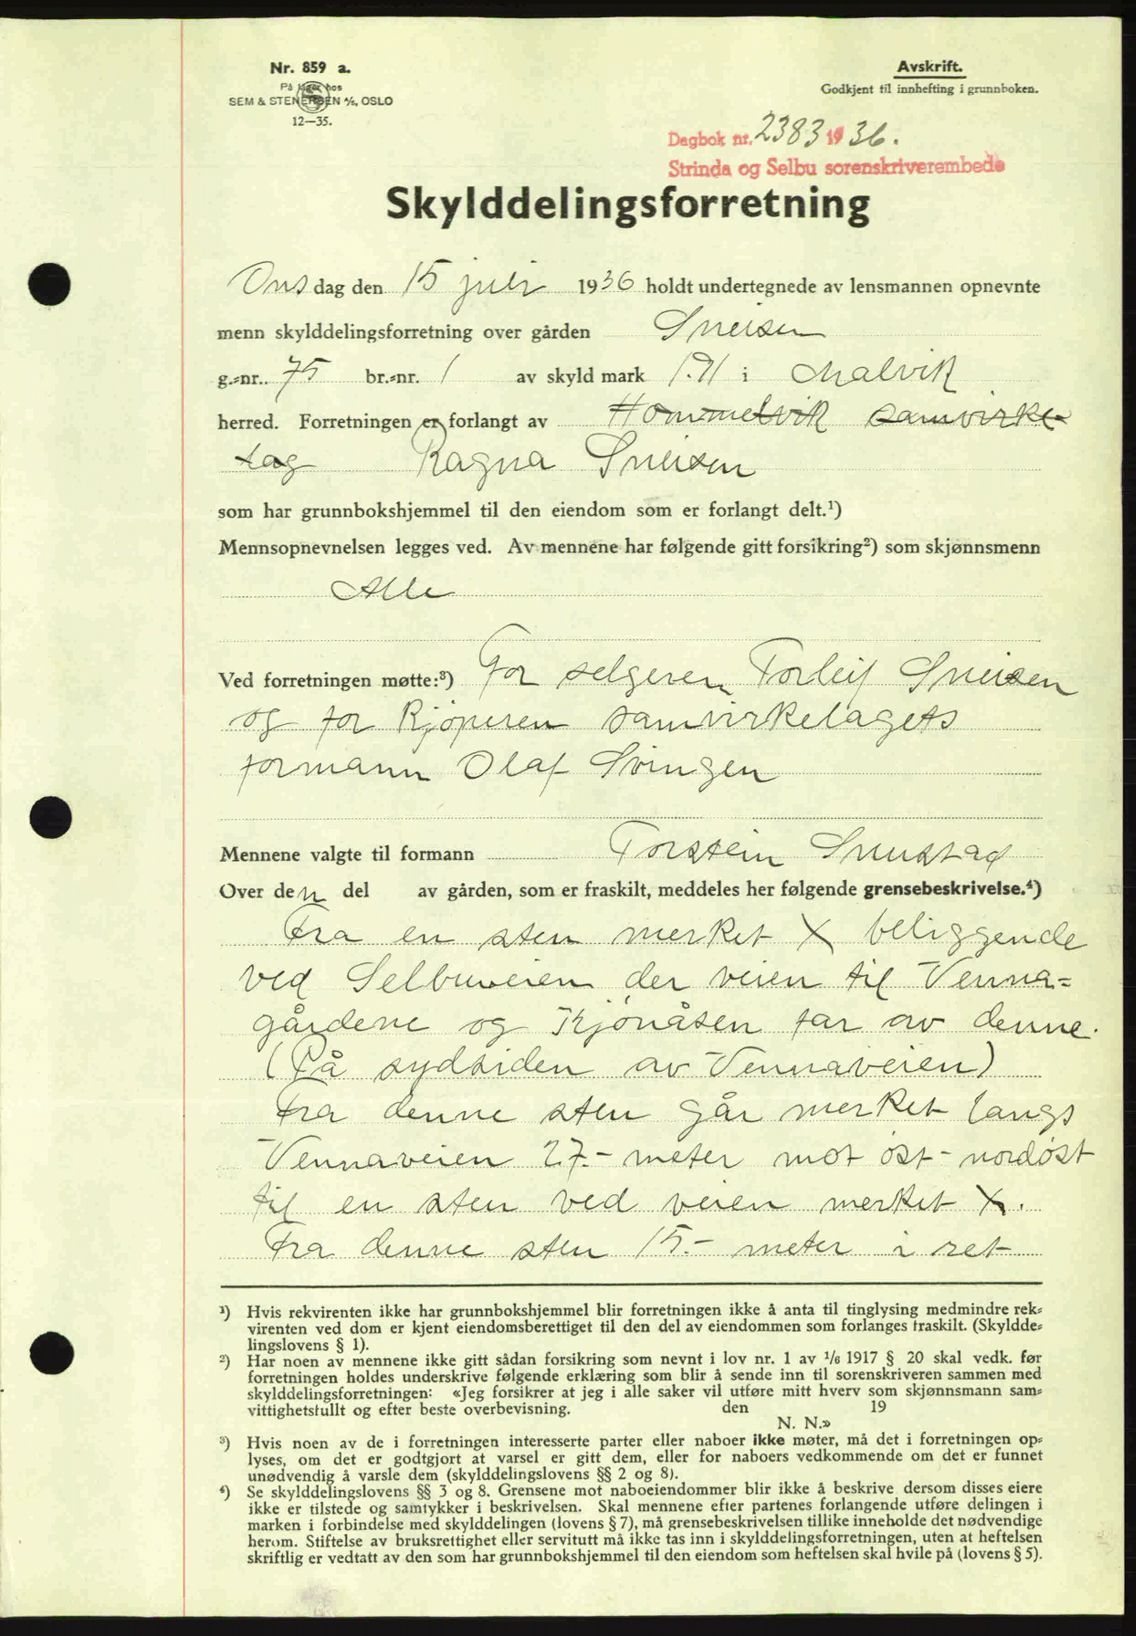 Nr. 859 a.
På lager hos
SEM & STENERSEN A/S, OSLO
12—35.
Avskrift.
Godkjent til innhefting i grunnboken.
Dagbok nr. 2383 1936.
Strinda og Selbu sorenskriverembede
Skylddelingsforretning
Onsdag den 15 juli 1936 holdt undertegnede av lensmannen opnevnte
menn skylddelingsforretning over gården Sneisen
g.=nr. 75 br.=nr. 1 av skyld mark 1.91 i Malvik
herred. Forretningen er forlangt av Hommelvik samvirke-
lag Ragna Sneisen
som har grunnbokshjemmel til den eiendom som er forlangt delt.¹)
Mennsopnevnelsen legges ved. Av mennene har følgende gitt forsikring²) som skjønnsmenn
Alle
Ved forretningen møtte:³) For selgeren Torleif Sneisen
og for kjøperen samvirkelagets
formann Olaf Svingen
Mennene valgte til formann Torstein Snustad
Over den del av gården, som er fraskilt, meddeles her følgende grensebeskrivelse.⁴)
Fra en sten merket X beliggende
ved Selbuveien der veien til Venna=
gårdene og Kjønåsen tar av denne.
(På sydsiden av Vennaveien)
Fra denne sten går merket langs
Vennaveien 27.- meter mot øst-nordøst
til en sten ved veien merket X.
Fra denne sten 15.- meter i ret
¹) Hvis rekvirenten ikke har grunnbokshjemmel blir forretningen ikke å anta til tinglysing medmindre rek=
virenten ved dom er kjent eiendomsberettiget til den del av eiendommen som forlanges fraskilt. (Skyldde=
lingslovens § 1).
²) Har noen av mennene ikke gitt sådan forsikring som nevnt i lov nr. 1 av 1/6 1917 § 20 skal vedk. før
forretningen holdes underskrive følgende erklæring som blir å sende inn til sorenskriveren sammen med
skylddelingsforretningen: «Jeg forsikrer at jeg i alle saker vil utføre mitt hverv som skjønnsmann sam=
vittighetsfullt og efter beste overbevisning. den 19
N. N.»
³) Hvis noen av de i forretningen interesserte parter eller naboer ikke møter, må det i forretningen op=
lyses, om det er godtgjort at varsel er gitt dem, eller for naboers vedkommende om det er funnet
unødvendig å varsle dem (skylddelingslovens §§ 2 og 8).
⁴) Se skylddelingslovens §§ 3 og 8. Grensene mot naboeiendommer blir ikke å beskrive dersom disses eiere
ikke er tilstede og samtykker i beskrivelsen. Skal mennene efter partenes forlangende utføre delingen i
marken i forbindelse med skylddelingen (lovens § 7), må grensebeskrivelsen tillike inneholde det nødvendige
herom. Stiftelse av bruksrettighet eller servitutt må ikke tas inn i skylddelingsforretningen, uten at heftelsen
skriftlig er vedtatt av den som har grunnbokshjemmel til den eiendom som heftelsen skal hvile på (lovens § 5).